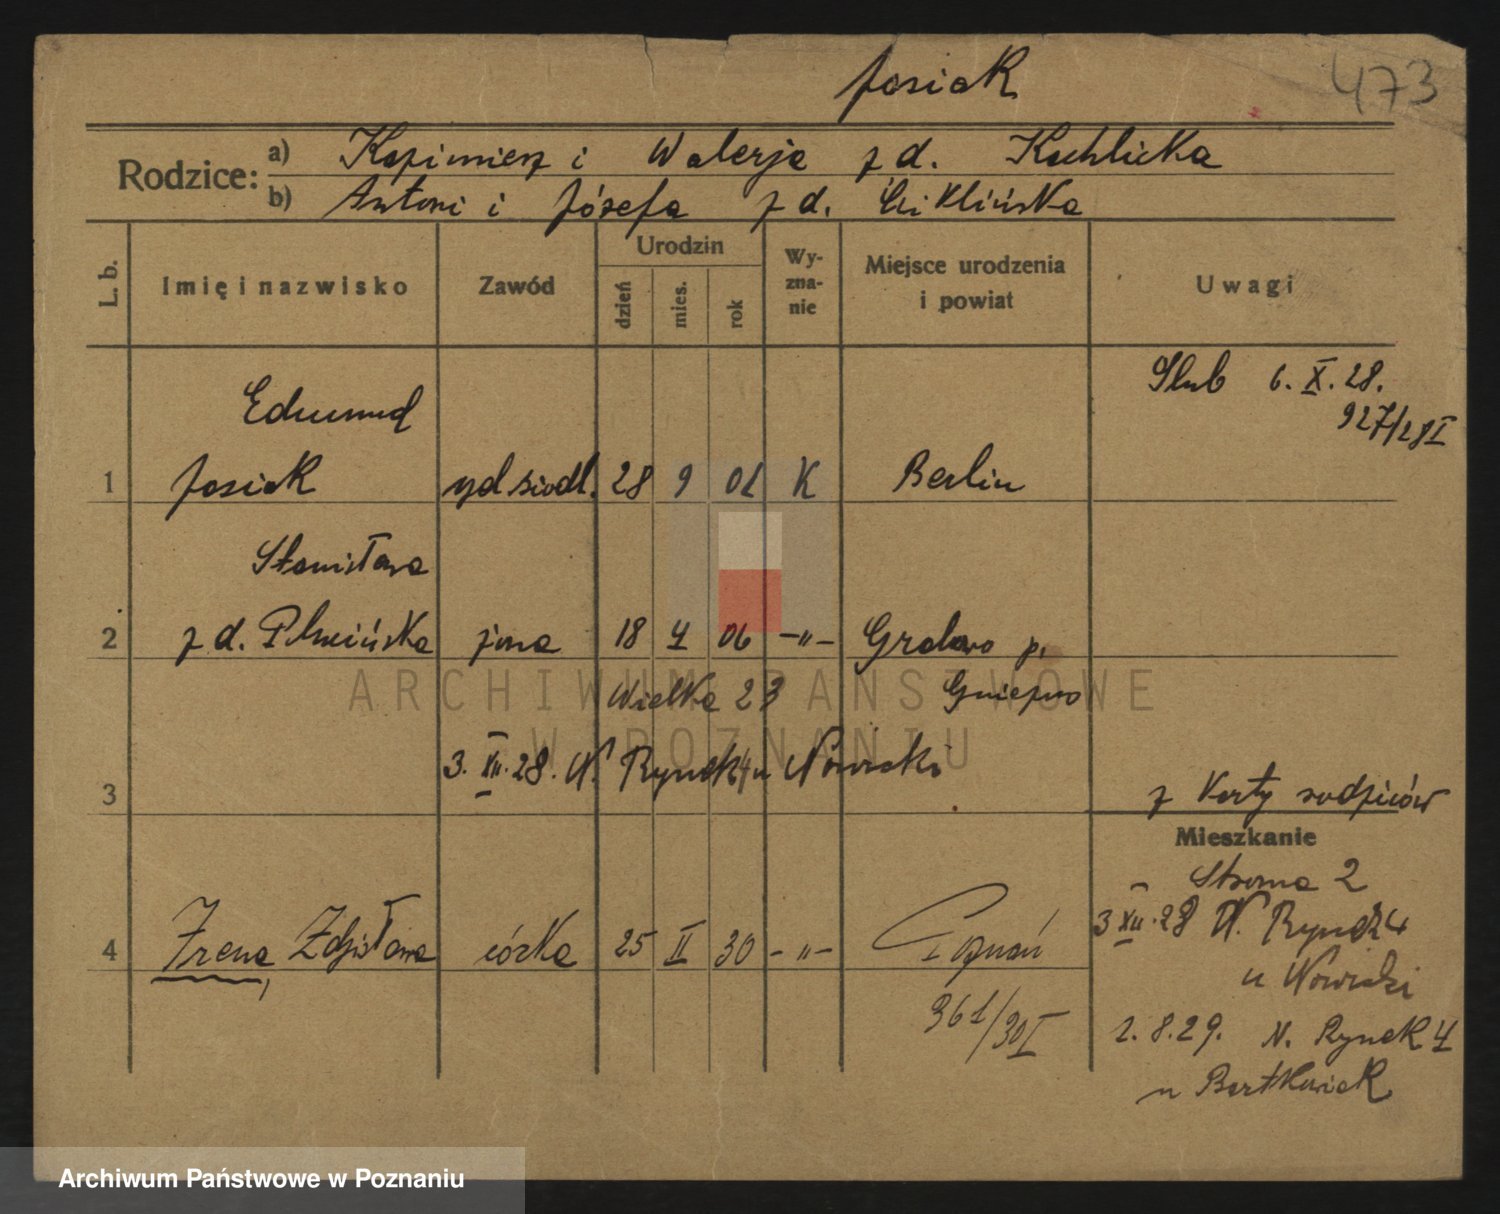 Josiak
473
Rodzice:
a) Kazimierz i Walerja z d. Kuchlicka
b) Antoni i Józefa z d.
L. b.
Imię i nazwisko
Zawód
Urodzin
dzień
mies.
rok
Wy-
zna-
nie
Miejsce urodzenia
i powiat
Uwagi
Edmund
1 Josiak siodl. 28 9 01 K Berlin
Ślub 6. X. 28.
927/28 I
Stanisława
2 z d. żona 18 4 06 -"- Grabowo p.
Gniezno
Wielka 23
3 3. XII. 28. N. Rynek 4 u Nowicki
z karty rodziców
Mieszkanie
Stroma 2
3 XII. 28 N. Rynek 4
u Nowicki
1. 8. 29. N. Rynek 4
u Bartkowiak
4 Irena, Zdzisława córka 25 II 30 -"- Poznań
361/30 I
ARCHIWUM PAŃSTWOWE
W POZNANIU
Archiwum Państwowe w Poznaniu